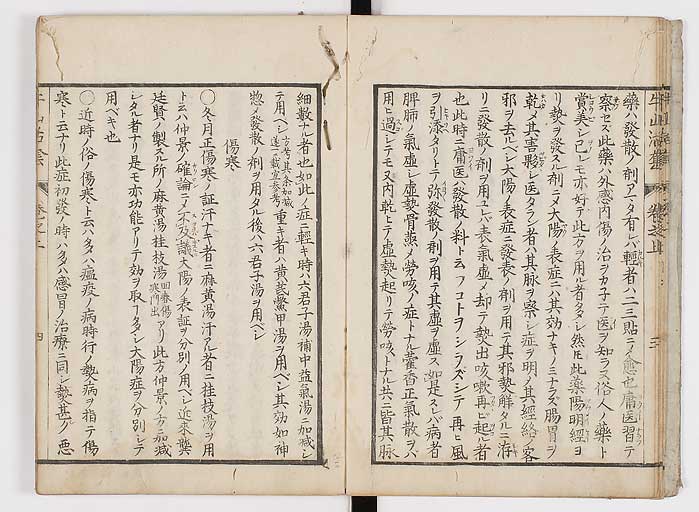 藥ハ發散ノ剤アニタ有レバ輕者ハ二三貼テイ愈也庸医習テ
察セズ此藥ハ外感内傷ノ治ヲカ子テ医ヲ知ラズ俗人ノ藥ト
賞美シ己レモ亦好テ此方ヲ用ル者タヌシ然𪜈此藥陽明經ヨ
リ勢ヲ發スル剤ニメ大陽ノ表症ニハ其効ナキノミナラズ腸胃ヲ
乾メ其害夥シ医タラン者ハ其脉ヲ察シ症ヲ明メ其經絡ノ客
邪ヲ去ルベシ大陽ノ表症ニ發表ノ剤ヲ用テ其邪勢觧タルニ淫
リニ發散ノ剤ヲ用ユレバ表氣虚メ却テ熱出咳嗽再ビ起ル者
也此時ニ庸医ハ發散ノ料ト云フコトヲシラズシテ再ヒ風
ヲ引添タリトテ弥發散ノ剤ヲ用テ其虚ヲ虚ス如是スレバ病者
脾肺ノ氣虚シ虚勢骨蒸メ労咳ノ症トナル藿香正氣散ヲハ
用ヒ過シテモ又内乾ヒテ虚熱起リテ労咳トナル共ニ皆其脉
細數ナル者也如此ノ症ニ輕キ時ハ六君子湯補中益氣湯ニ加減シ
テ用ベシ 重キ者ハ黄芪鱉甲湯ヲ用ベシ其効如神
惣ノ發散ノ剤ヲ用タル後ハ六君子湯ヲ用ベシ
傷寒
〇冬月正傷寒ノ証汗ナキ者ニ麻黄湯汗アル者ニ桂枝湯ヲ用
ト云ハ仲景ノ確論ニメ不及議大陽ノ表証ヲ分別ノ用ベシ近来龔
廷賢ハ製スル所ノ麻黄湯桂枝湯 アリ此方仲景ノ方ニ加減
シタル者ナリ是モ亦功能アリテ効ヲ取リタヌシ大陽症ヲ分別シテ
用ベキ也
〇近時ノ俗ノ傷寒ト云ハタハ瘟疫ノ病時行ノ熱病ヲ指テ傷
寒ト云ナリ此症初發ノ時ハタハ感冒ノ治療ニ同シ勢甚グ悪
四